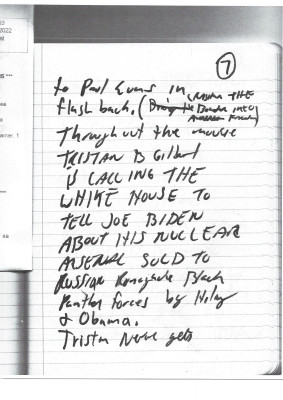 7
to Paul Evans in
flash back. (
Throughout the movie
TRISTAN B Gilbert
IS CALLING THE
WHITE HOUSE TO
TELL JOE BIDEN
ABOUT HIS NUCLEAR
ARSENAL SOLD TO
RUSSIAN Renegade Black
Panther forces by Hilary
& Obama.
Tristan Never gets